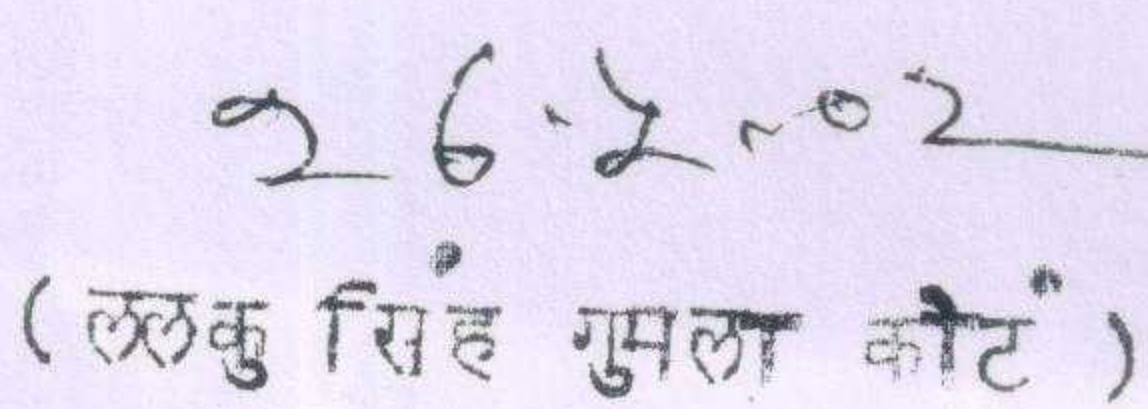 26.2.02
(ललकु सिंह गुमला कोटं)